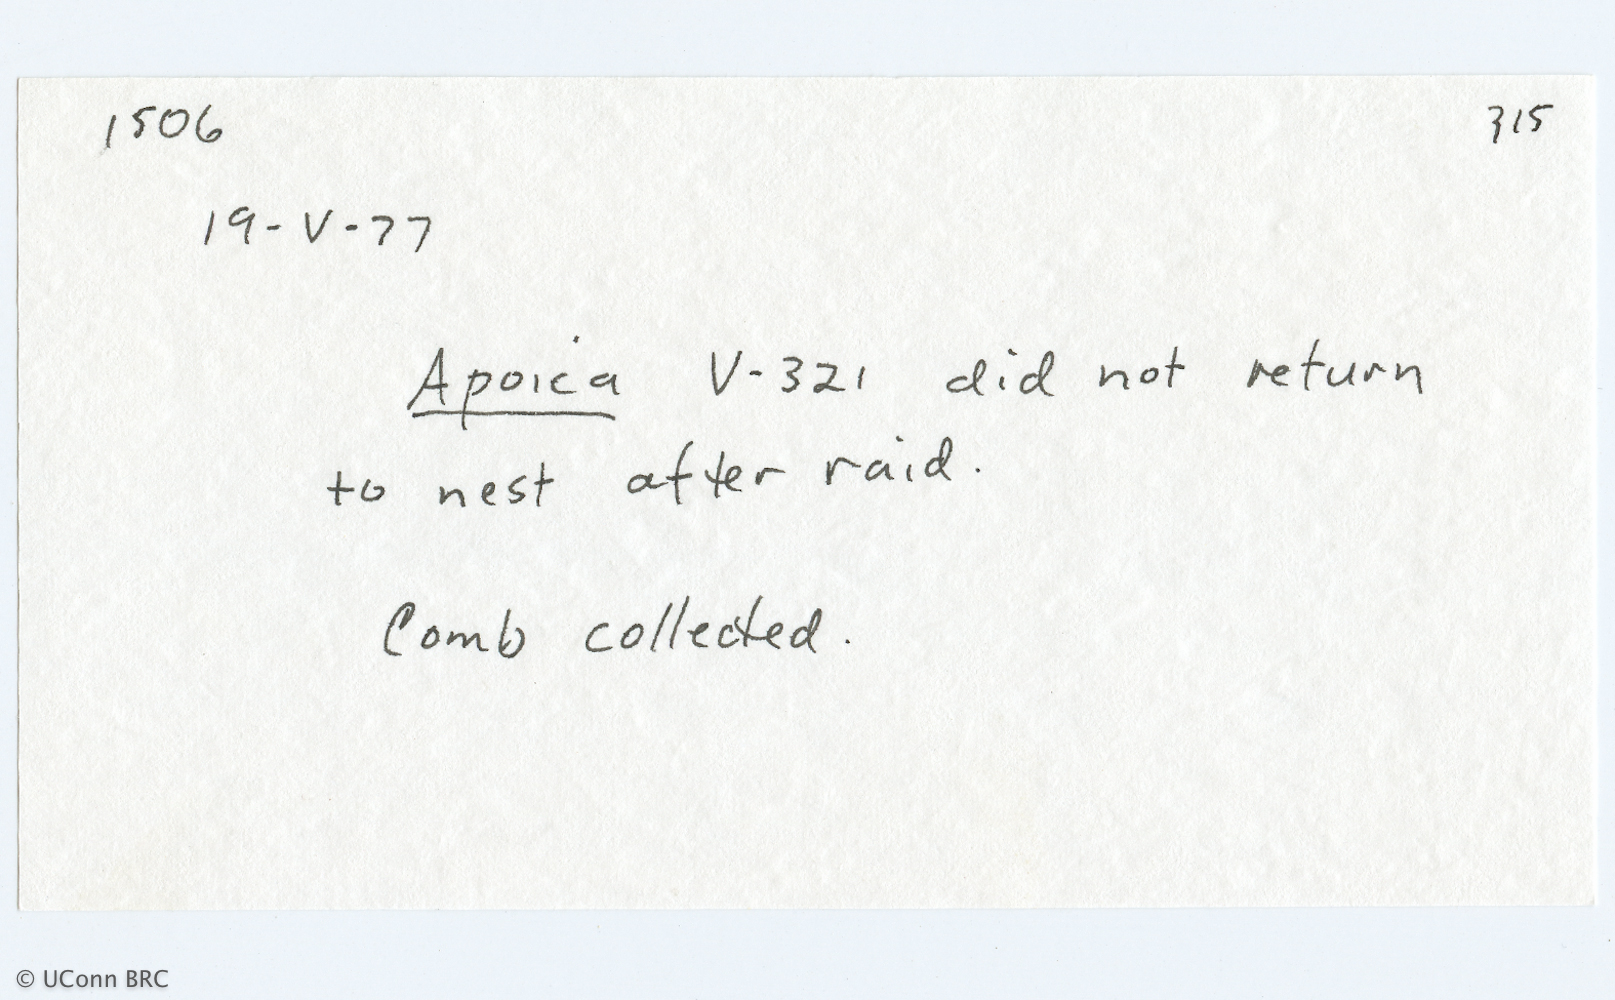 1506
315
19-V-77
Apoica V-321 did not return
to nest after raid.
Comb collected.
© UConn BRC